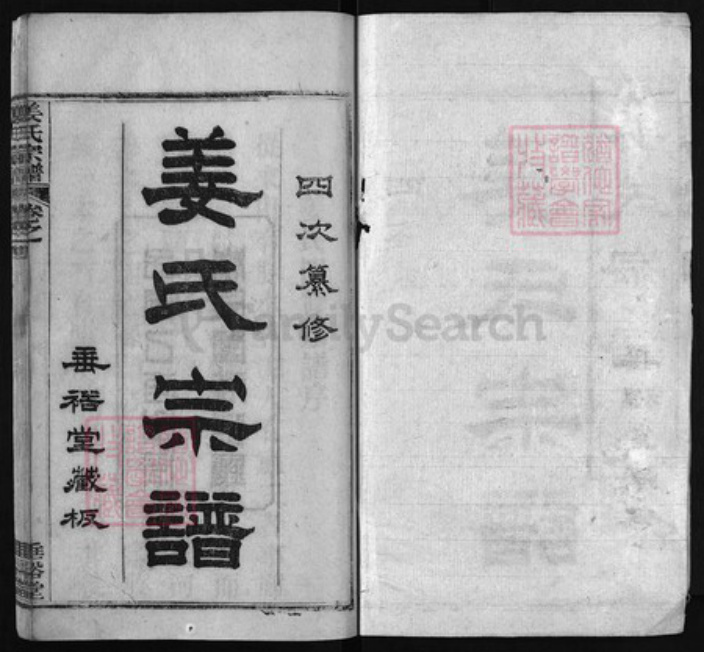 四次纂修
姜氏宗譜
垂裕堂藏板
姜氏宗譜
卷之一
垂裕堂
FamilySearch